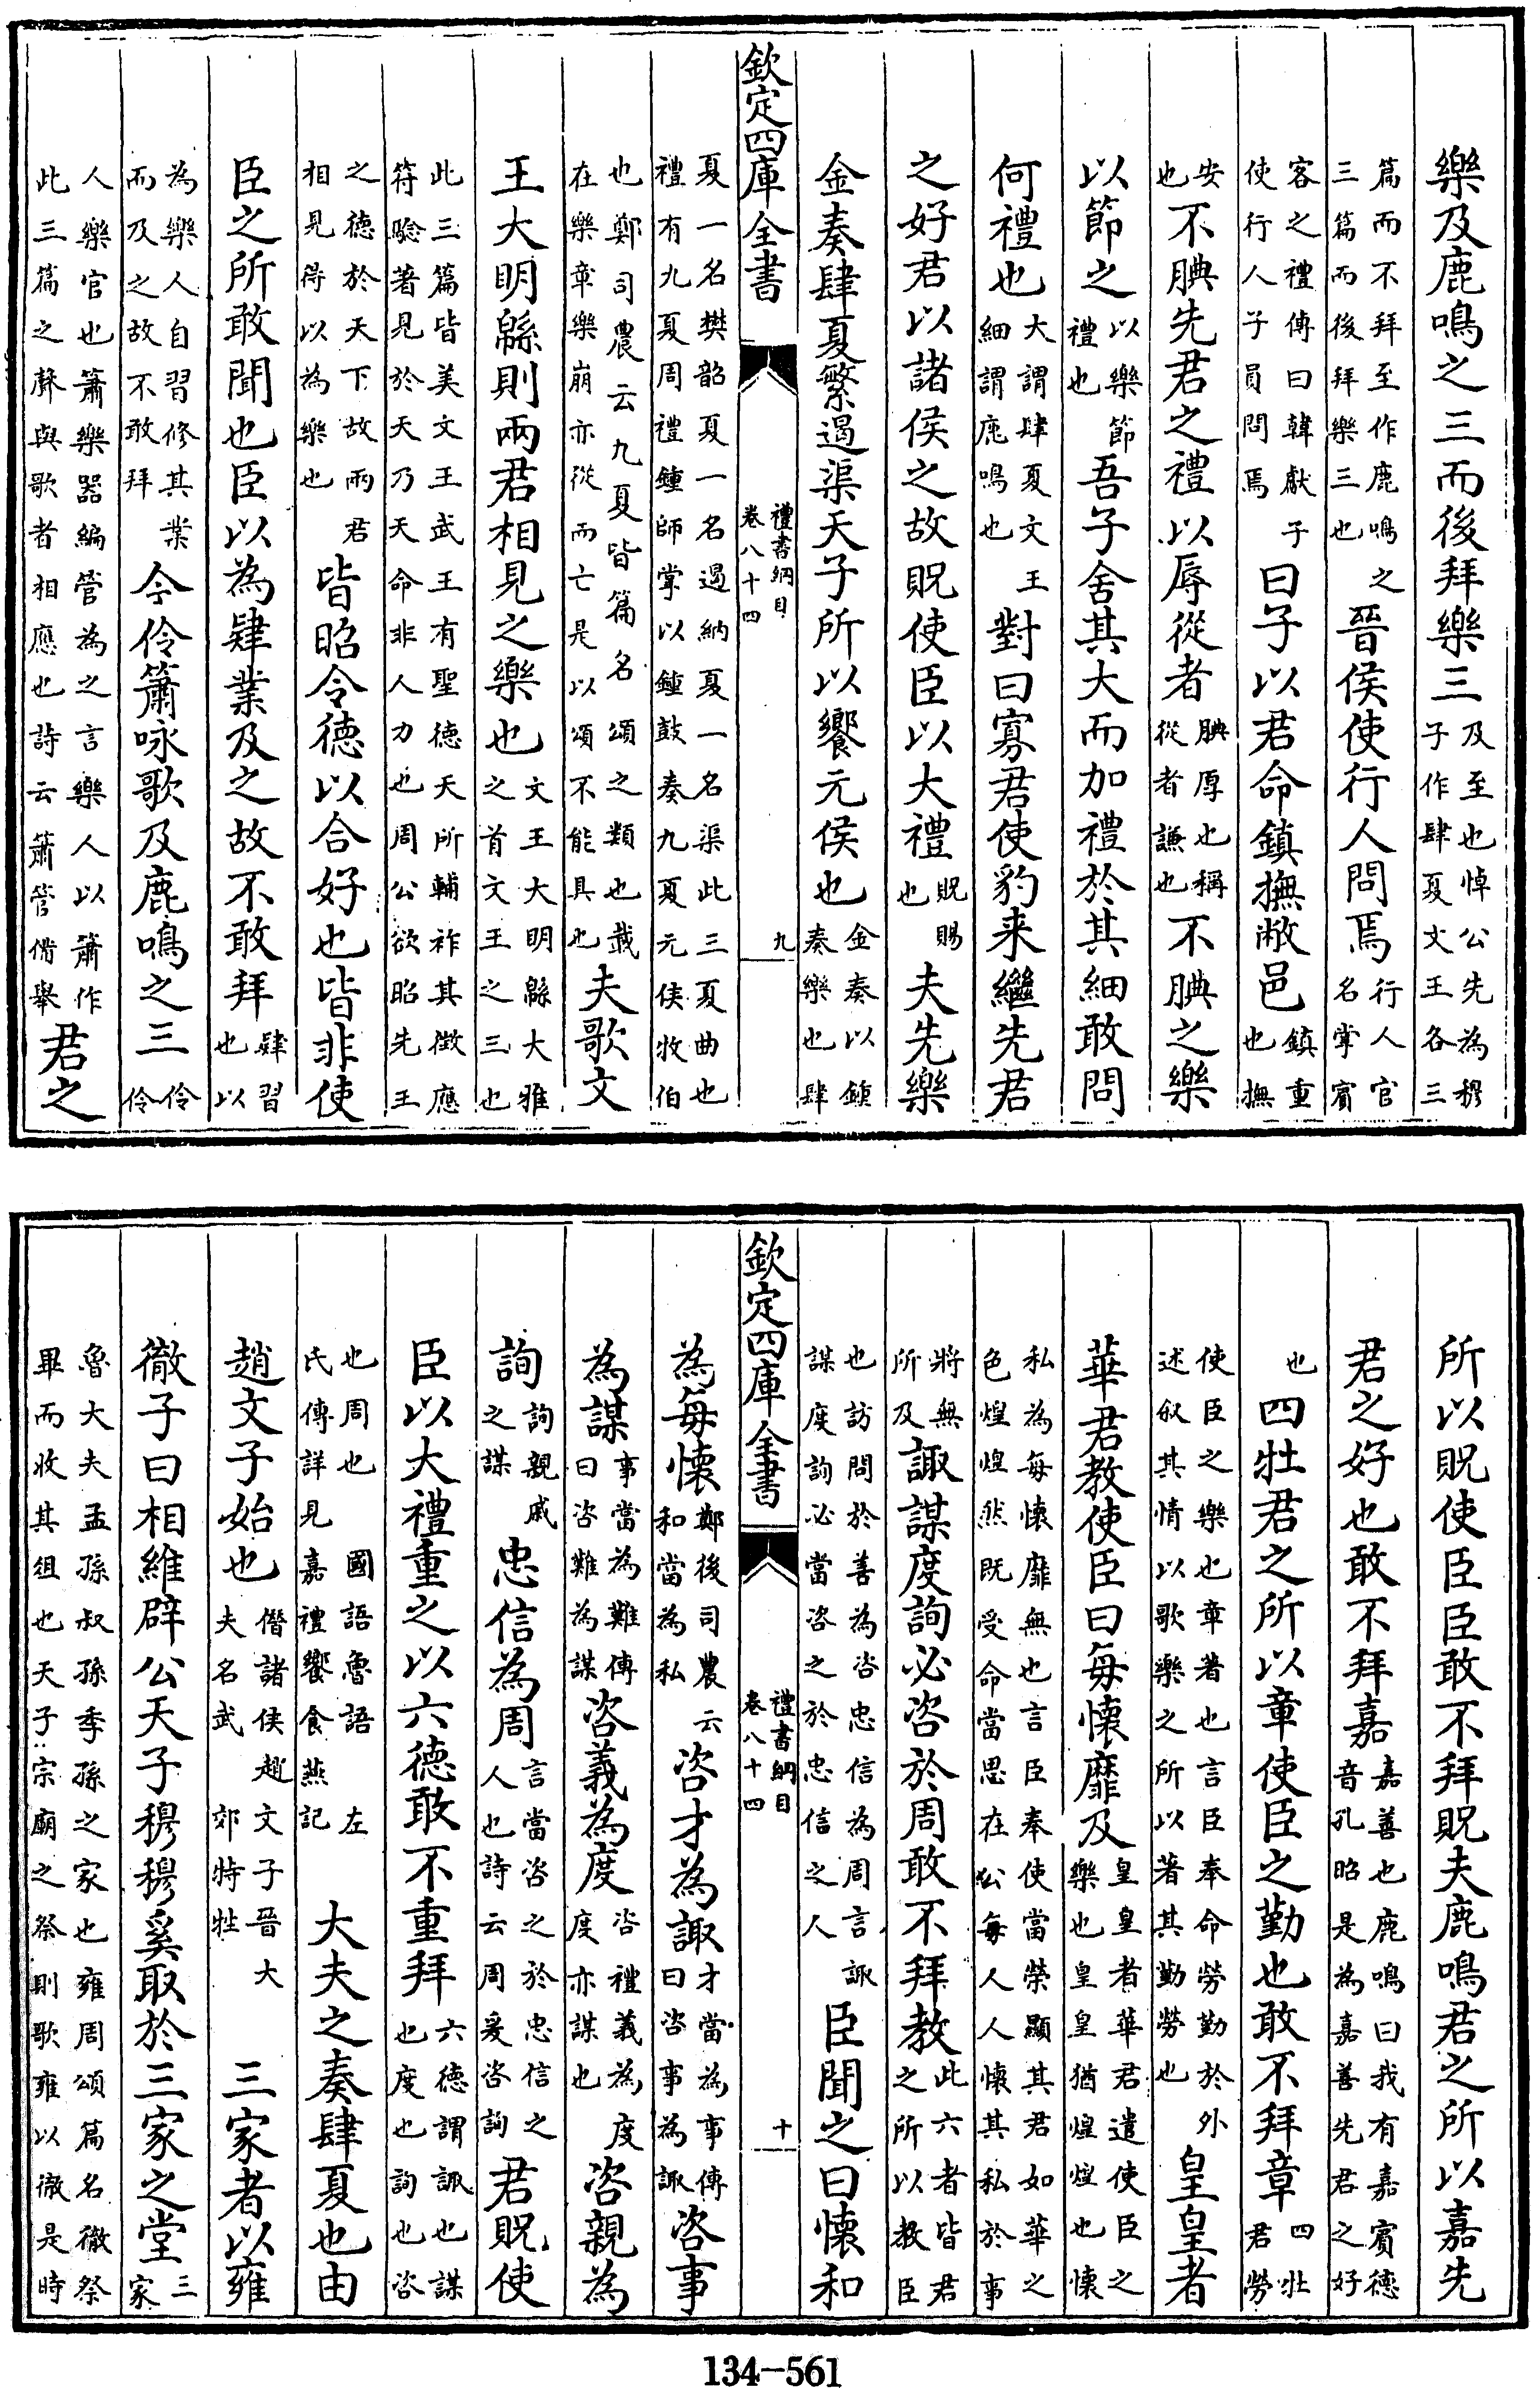 樂及鹿鳴之三而後拜樂三及至也悼公先為穆子作肆夏文王各三
篇而不拜至作鹿鳴之三篇而後拜樂三也晉侯使行人問焉行人官名掌賓
客之禮傳曰韓獻子使行人子員問焉曰子以君命鎮撫敝邑鎮重也撫
安也不腆先君之禮以辱從者腆厚也稱從者謙也不腆之樂
以節之以樂節禮也吾子舍其大而加禮於其細敢問
何禮也大謂肆夏文王細謂鹿鳴也對曰寡君使豹来繼先君
之好君以諸侯之故貺使臣以大禮貺賜也夫先樂
金奏肆夏繁遏渠天子所以饗元侯也金奏以鍾奏樂也肆
欽定四庫全書 禮書綱目卷八十四 九
夏一名樊韶夏一名遏納夏一名渠此三夏曲也禮有九夏周禮鍾師掌以鍾鼓奏九夏元侯牧伯
也鄭司農云九夏皆篇名頌之類也載在樂章樂崩亦從而亡是以頌不能具也夫歌文
王大明緜則兩君相見之樂也文王大明緜大雅之首文王之三也
此三篇皆美文王武王有聖德天所輔祚其徵應符驗著見於天乃天命非人力也周公欲昭先王
之德於天下故兩君相見得以為樂也皆昭令德以合好也皆非使
臣之所敢聞也臣以為肄業及之故不敢拜肄習也以
為樂人自習修其業而及之故不敢拜今伶簫咏歌及鹿鳴之三伶伶
人樂官也簫樂器編管為之言樂人以簫作此三篇之聲與歌者相應也詩云簫管備舉君之
所以貺使臣臣敢不拜貺夫鹿鳴君之所以嘉先
君之好也敢不拜嘉嘉善也鹿鳴曰我有嘉賓德音孔昭是為嘉善先君之好
也四牡君之所以章使臣之勤也敢不拜章四牡君勞
使臣之樂也章著也言臣奉命勞勤於外述叙其情以歌樂之所以著其勤勞也皇皇者
華君教使臣曰每懷靡及皇皇者華君遣使臣之樂也皇皇猶煌煌也懷
私為每懷靡無也言臣奉使當榮顯其君如華之色煌煌然既受命當思在公每人人懷其私於事
將無所及諏謀度詢必咨於周敢不拜教此六者皆君之所以教臣
也訪問於善為咨忠信為周言諏謀度詢必當咨之於忠信之人臣聞之曰懷和
欽定四庫全書 禮書綱目卷八十四 十
為每懷鄭後司農云和當為私咨才為諏才當為事傳曰咨事為諏咨事
為謀事當為難傳曰咨難為謀咨義為度咨禮義為度度亦謀也咨親為
詢詢親戚之謀忠信為周言當咨之於忠信之人也詩云周爰咨詢君貺使
臣以大禮重之以六德敢不重拜六德謂諏也謀也度也詢也咨
也周也國語魯語左氏傳詳見嘉禮饗食燕記大夫之奏肆夏也由
趙文子始也僭諸侯趙文子晉大夫名武郊特牲三家者以雍
徹子曰相維辟公天子穆穆奚取於三家之堂三家
魯大夫孟孫叔孫季孫之家也雍周頌篇名徹祭畢而收其俎也天子宗廟之祭則歌雍以徹是時
134-561